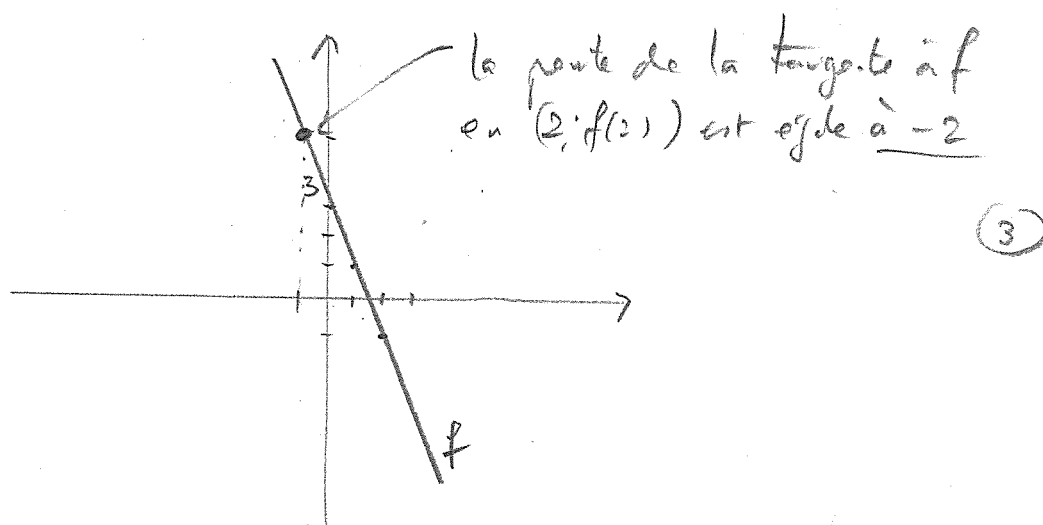 la pente de la tangente à f
en (2; f(2)) est égale à -2
3
3
f